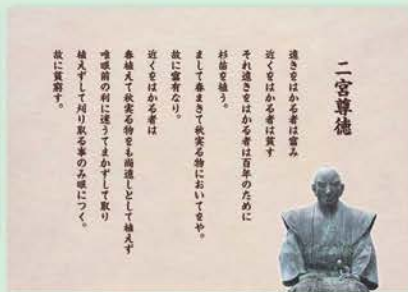 二宮尊徳
遠きをはかる者は富み
近くをはかる者は貧す
それ遠きをはかる者は百年のために
杉苗を植う。
まして春まきて秋実る物においてをや。
故に富有なり。
近くをはかる者は
春植えて秋実る物をも尚遠しとして植えず
唯眼前の利に迷うてまかずして取り
植えずして刈り取る事のみ眼につく。
故に貧窮す。